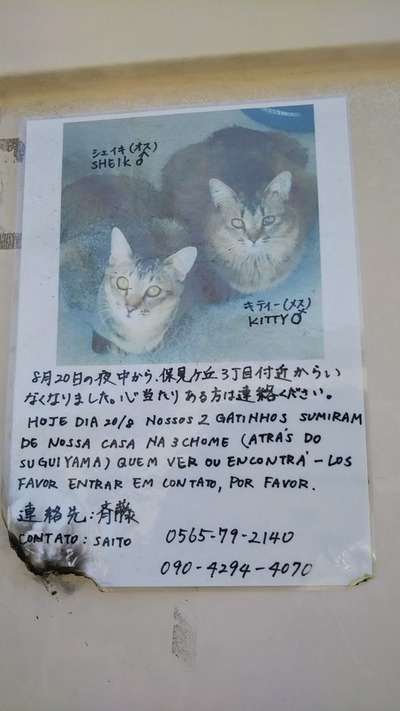 シェイキ(オス)
SHEIK ♂
キティー(メス)
KITTY ♂
8月20日の夜中から、保見ケ丘3丁目付近からい
なくなりました。心当たりある方は連絡ください。
HOJE DIA 20/8 NOSSOS 2 GATINHOS SUMIRAM
DE NOSSA CASA NA 3 CHOME (ATRÁS DO
SUGUIYAMA) QUEM VER OU ENCONTRÁ-LOS
FAVOR ENTRAR EM CONTATO, POR FAVOR.
連絡先:斉藤
CONTATO: SAITO 0565-79-2140
090-4294-4070